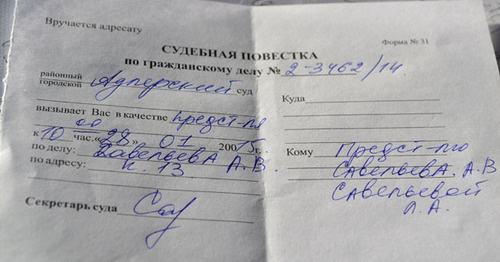 Вручается адресату
Форма № 31
СУДЕБНАЯ ПОВЕСТКА
по гражданскому делу № 2-3462/14.
районный
городской Адлерский суд
вызывает Вас в качестве предст-ля
к 10 час. 00 «28» 01 2005г.
по делу: Савельева А.В.
по адресу: к. 13
Секретарь суда
Куда
Кому Предст-лю
Савельева. А.В
Савельевой
Л.А.